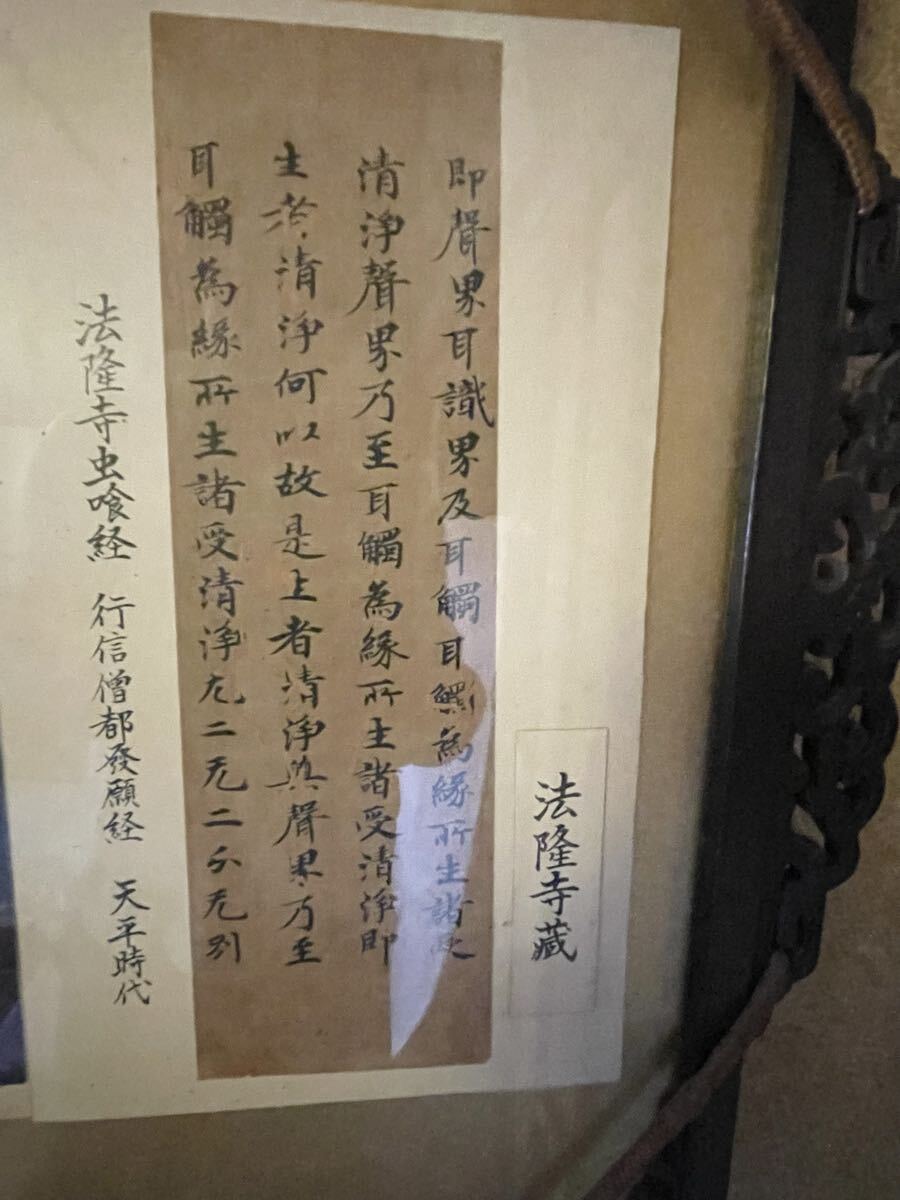 法隆寺藏
即聲界耳識界及耳觸耳觸為緣所生諸受
清淨聲界乃至耳觸為緣所生諸受清淨即
生者清淨何以故是上者清淨與聲界乃至
耳觸為緣所生諸受清淨无二无二分无別
法隆寺虫喰経 行信僧都發願経 天平時代